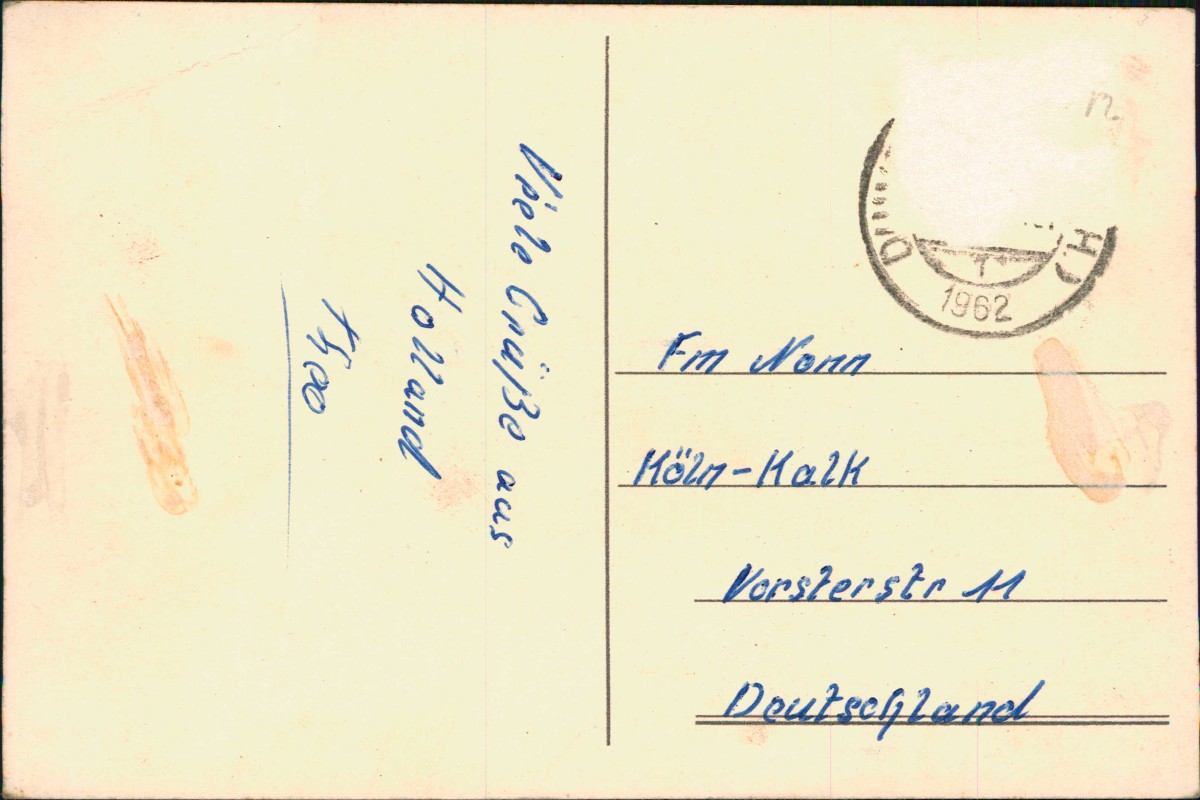 Viele Grüße aus
Holland
1962
Fm Nonn
Köln-Kalk
Vorsterstr 11
Deutschland